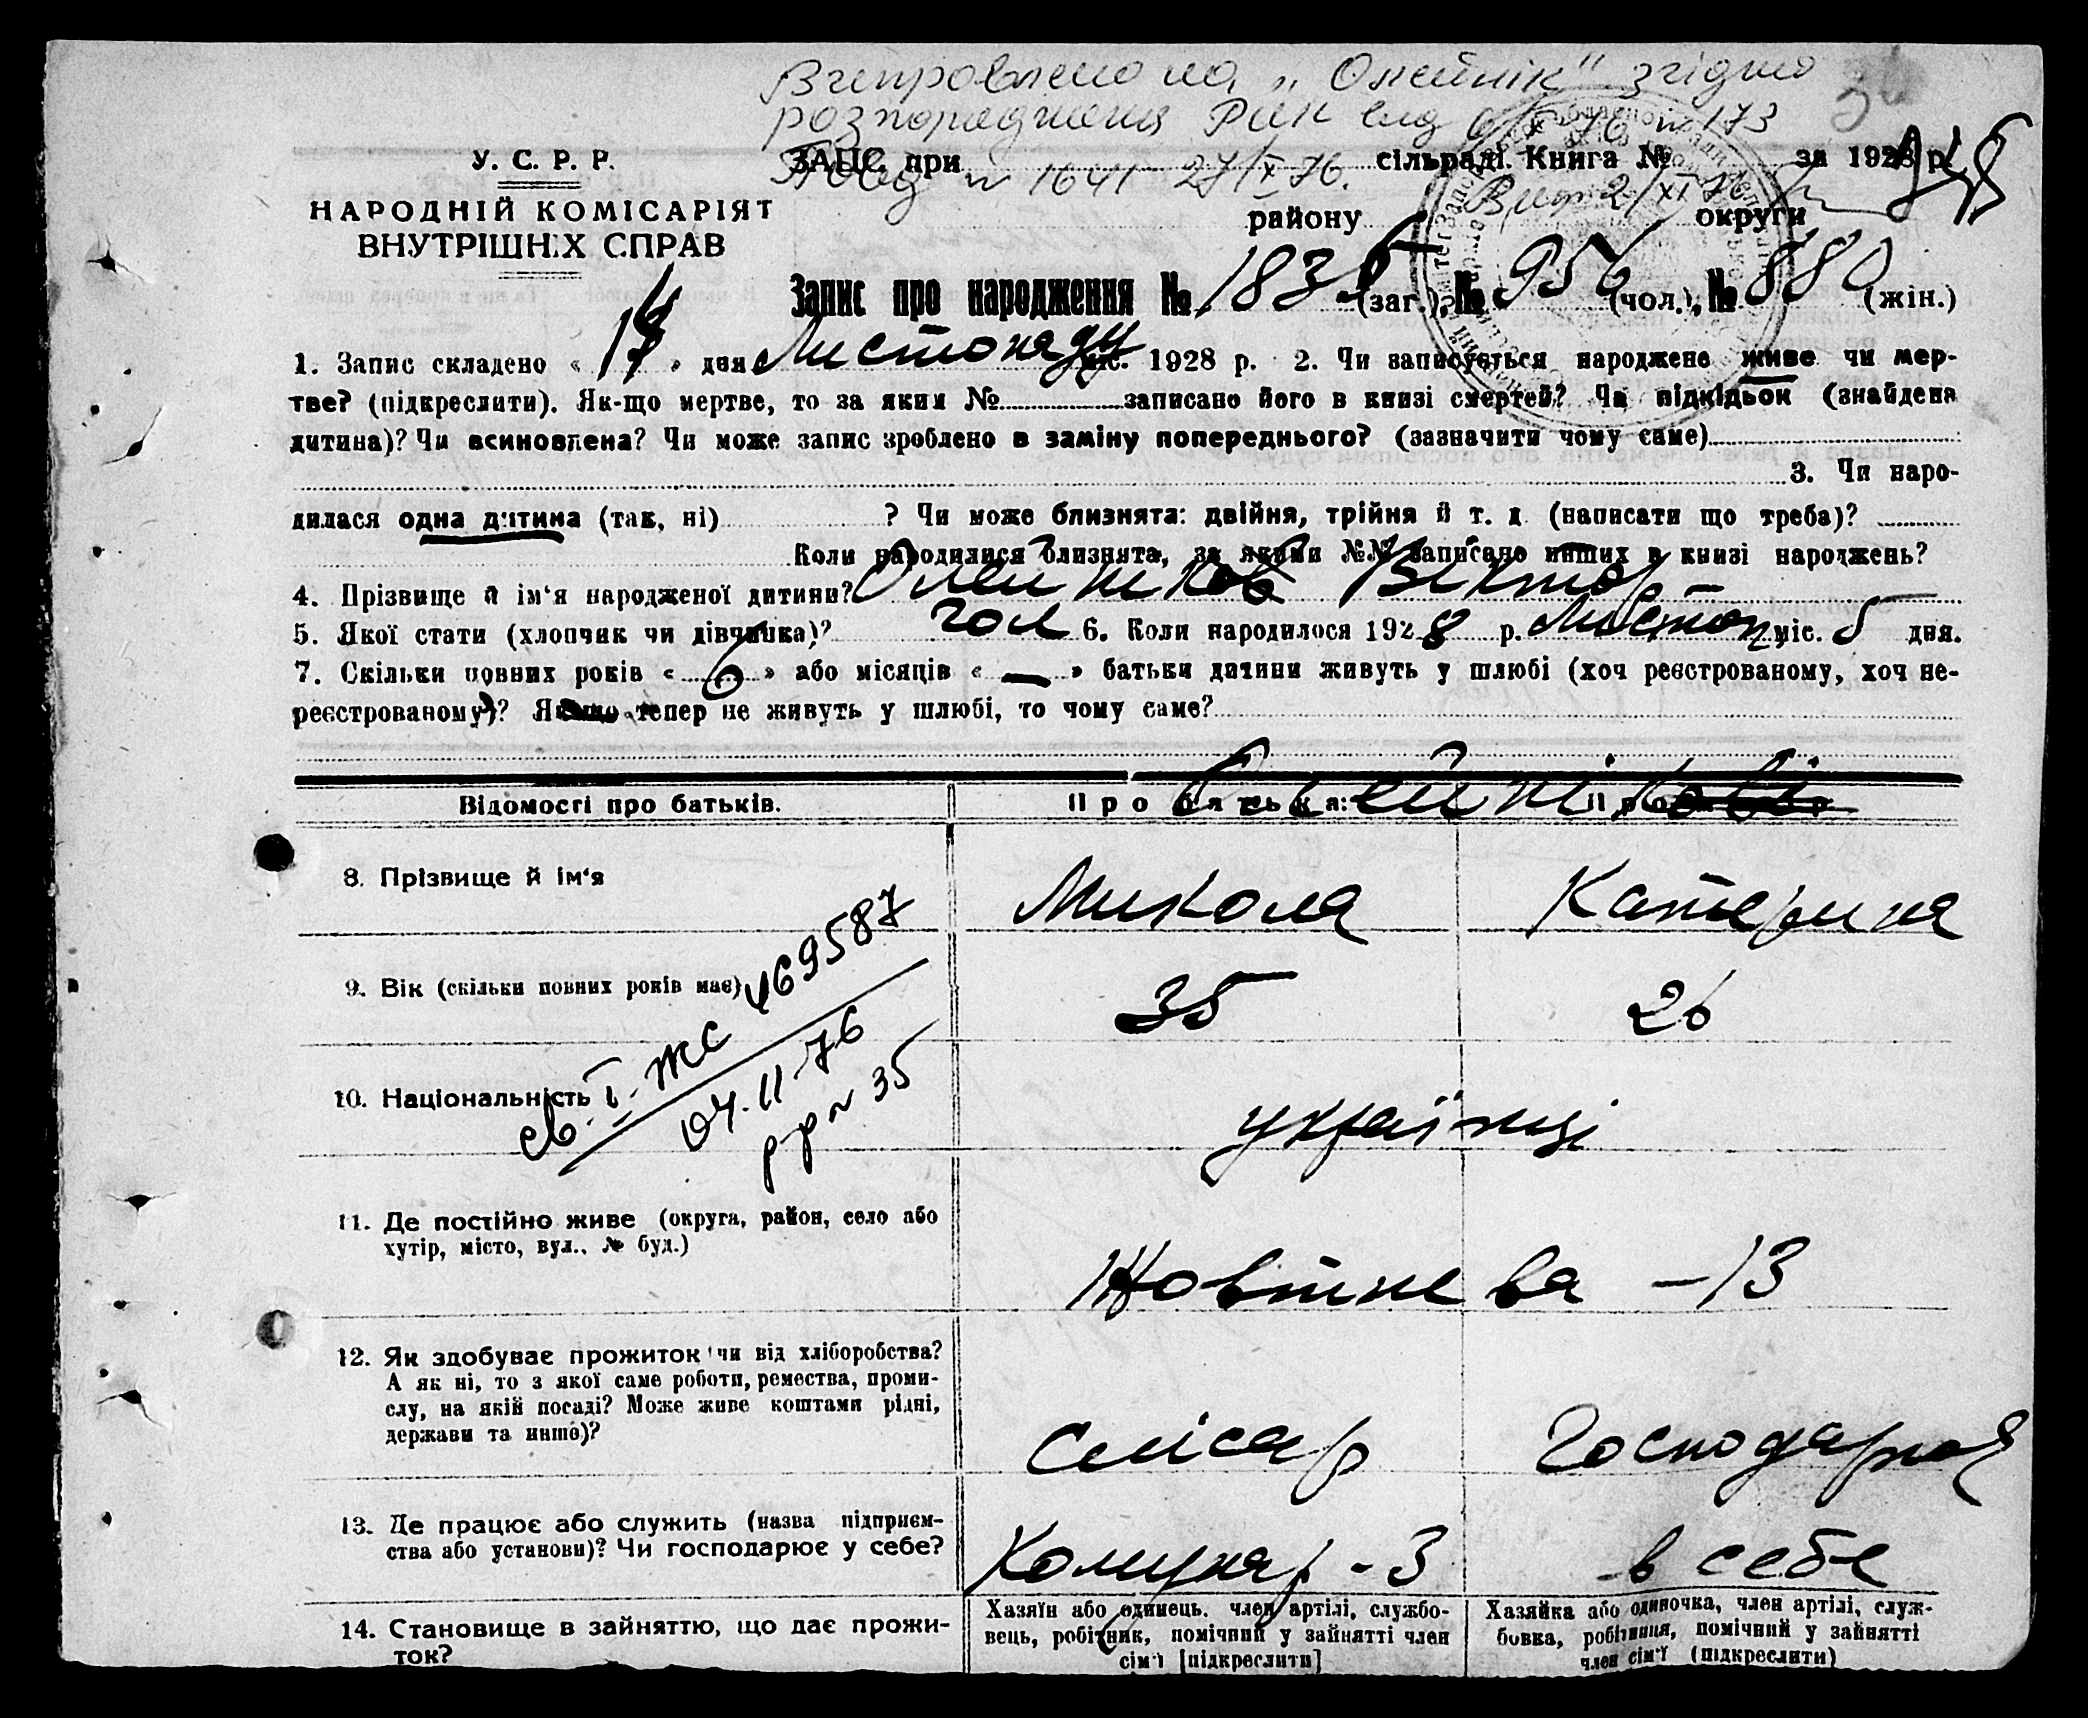 Виправлено на „Олейнік" згідно
розпорядження Рай від 6/X 76 № 173
У. С. Р. Р.
НАРОДНІЙ КОМІСАРІЯТ
ВНУТРІШНІХ СПРАВ
ЗАПС при сільраді. Книга № за 1928 р.
№ 1641 27/X 76.
району округи
Запис про народження № 1835 (заг.), № 956 (чол.), № 880 (жін.)
1. Запис складено « » дня Листопаду міс. 1928 р. 2. Чи записується народжене живе чи мер-
тве? (підкреслити). Як-що мертве, то за яким № записано його в книзі смертей? Чи підкідьок (знайдена
дитина)? Чи всиновлена? Чи може запис зроблено в заміну попереднього? (зазначити чому саме)
3. Чи наро-
дилася одна дитина (так, ні) ? Чи може близнята: двійня, трійня й т. д. (написати що треба)?
Коли народилися близнята, за якими №№ записано инших в книзі народжень?
4. Прізвище й ім'я народженої дитини? Олейніков Віктор
5. Якої стати (хлопчик чи дівчинка)? чол 6. Коли народилося 1928 р. Листоп. міс. 5 дня.
7. Скільки повних років « 6 » або місяців « — » батьки дитини живуть у шлюбі (хоч реєстрованому, хоч не-
реєстрованому)? Якщо тепер не живуть у шлюбі, то чому саме?
Відомості про батьків. Про батька: Про
Олейнікові
8. Прізвище й ім'я Микола Катерина
9. Вік (скільки повних років має) 35 26
10. Національність українці
св. I-ЖС 469587
04.11.76
р-р № 35
11. Де постійно живе (округа, район, село або
хутір, місто, вул., № буд.)
Жовтнева – 13
12. Як здобуває прожиток чи від хліборобства?
А як ні, то з якої саме роботи, ремества, проми-
слу, на якій посаді? Може живе коштами рідні,
держави та инше)?
Слісар Господарка
13. Де працює або служить (назва підприєм-
ства або установи)? Чи господарює у себе?
Комунар - 3 в себе
14. Становище в зайняттю, що дає прожи-
ток?
Хазяїн або одинець, член артілі, службо-
вець, робітник, помічний у зайнятті член
сім'ї [підкреслити]
Хазяйка або одиночка, член артілі, служ-
бовка, робітниця, помічний у зайнятті
член сім'ї (підкреслити)